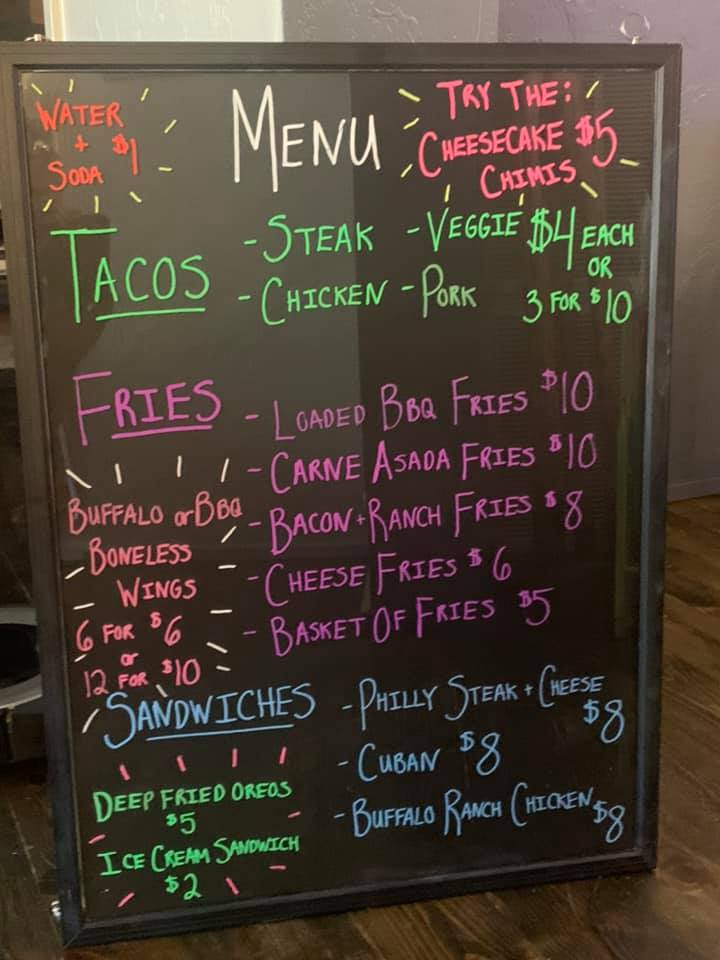 WATER
+
SODA $1
MENU
TRY THE:
CHEESECAKE $5
CHIMIS
TACOS
- STEAK - VEGGIE $4 EACH
OR
- CHICKEN - PORK 3 FOR $10
FRIES
- LOADED BBQ FRIES $10
- CARNE ASADA FRIES $10
- BACON + RANCH FRIES $8
- CHEESE FRIES $6
- BASKET OF FRIES $5
BUFFALO or BBQ
BONELESS
WINGS
6 FOR $6
or
12 FOR $10
SANDWICHES
- PHILLY STEAK + CHEESE
$8
- CUBAN $8
- BUFFALO RANCH CHICKEN $8
DEEP FRIED OREOS
$5
ICE CREAM SANDWICH
$2